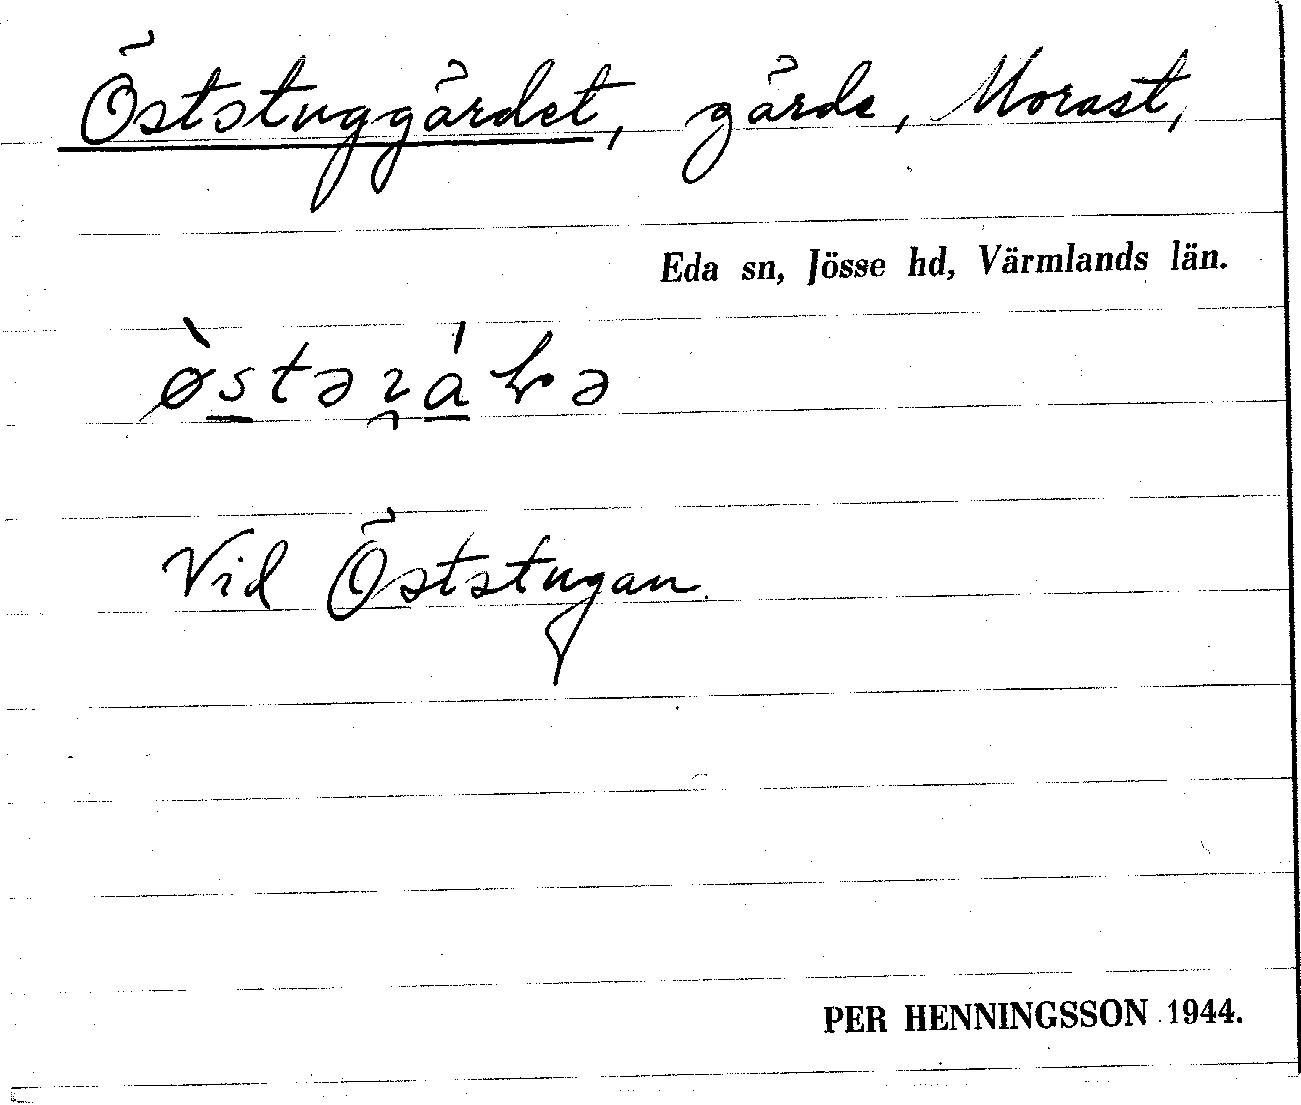 Öststuggärdet, gärde, Morast,
Eda sn, Jösse hd, Värmlands län.
Vid Öststugan.
PER HENNINGSSON 1944.